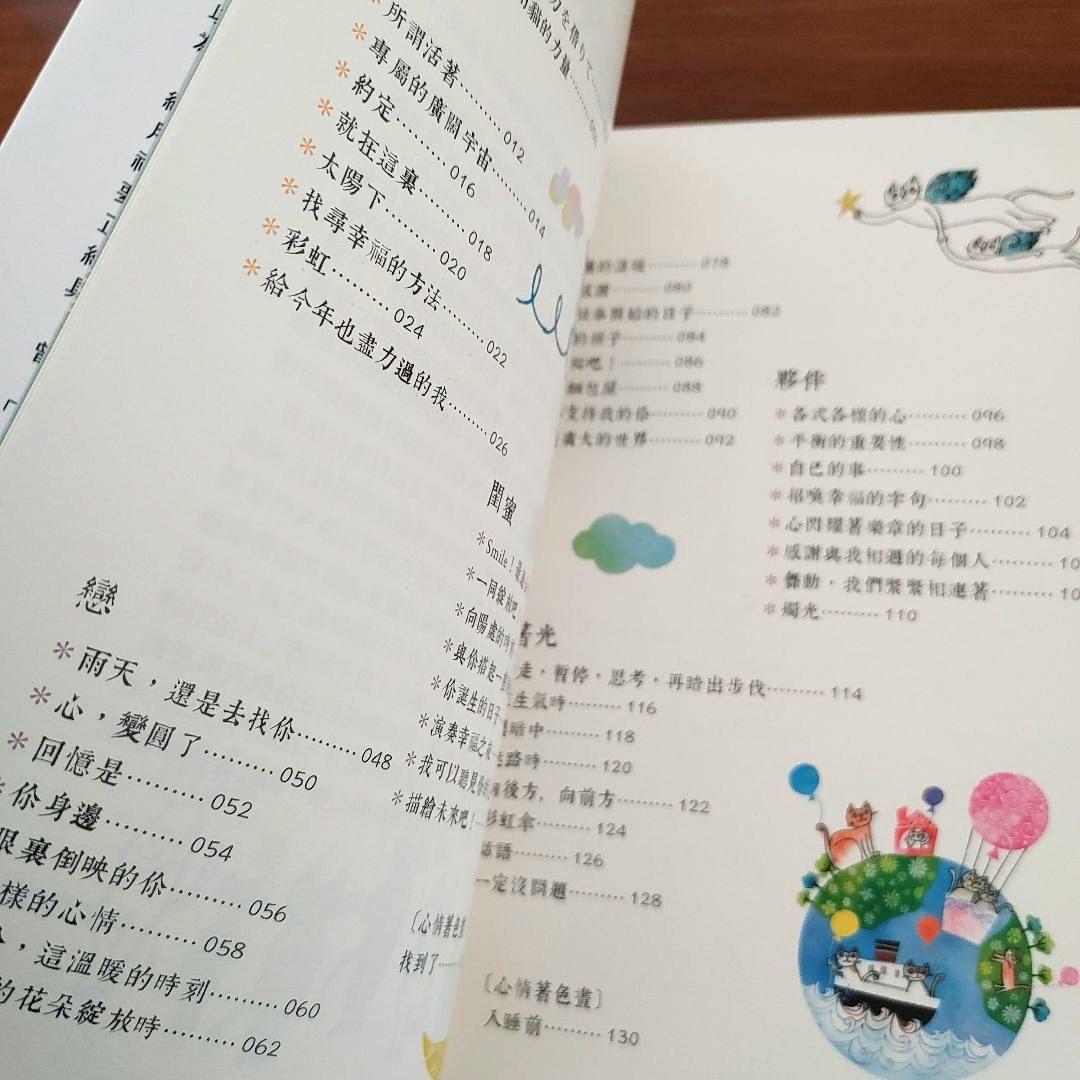 力を借りて
貓的力量
*所謂活著………012
*專屬的廣闊宇宙………014
*約定………016
*就在這裏………018
*太陽下………020
*找尋幸福的方法………022
*彩虹………024
*給今年也盡力過的我………026
戀
*雨天，還是去找你………048
*心，變圓了………050
*回憶是………052
你身邊………054
眼裏倒映的你………056
樣的心情………058
，這溫暖的時刻………060
的花朵綻放時………062
閨蜜
*Smile！
*一同綻放吧
*向陽處的時
*與你搭起一
*你誕生的日子
*演奏幸福之
*我可以聽見你
*描繪未來吧！
〔心情著色畫
找到了
………078
………080
的日子………082
的照子………084
吧！………086
麵包屋………088
支持我的你………090
廣大的世界………092
夥伴
*各式各樣的心………096
*平衡的重要性………098
*自己的事………100
*招喚幸福的字句………102
*心閃耀著樂章的日子………104
*感謝與我相遇的每個人………10
*舞動，我們緊緊相連著………10
*燭光………110
光
走，暫停，思考，再踏出步伐………114
生氣時………116
暗中………118
迷路時………120
後方，向前方………122
彩虹傘………124
話語………126
一定沒問題………128
〔心情著色畫〕
入睡前………130